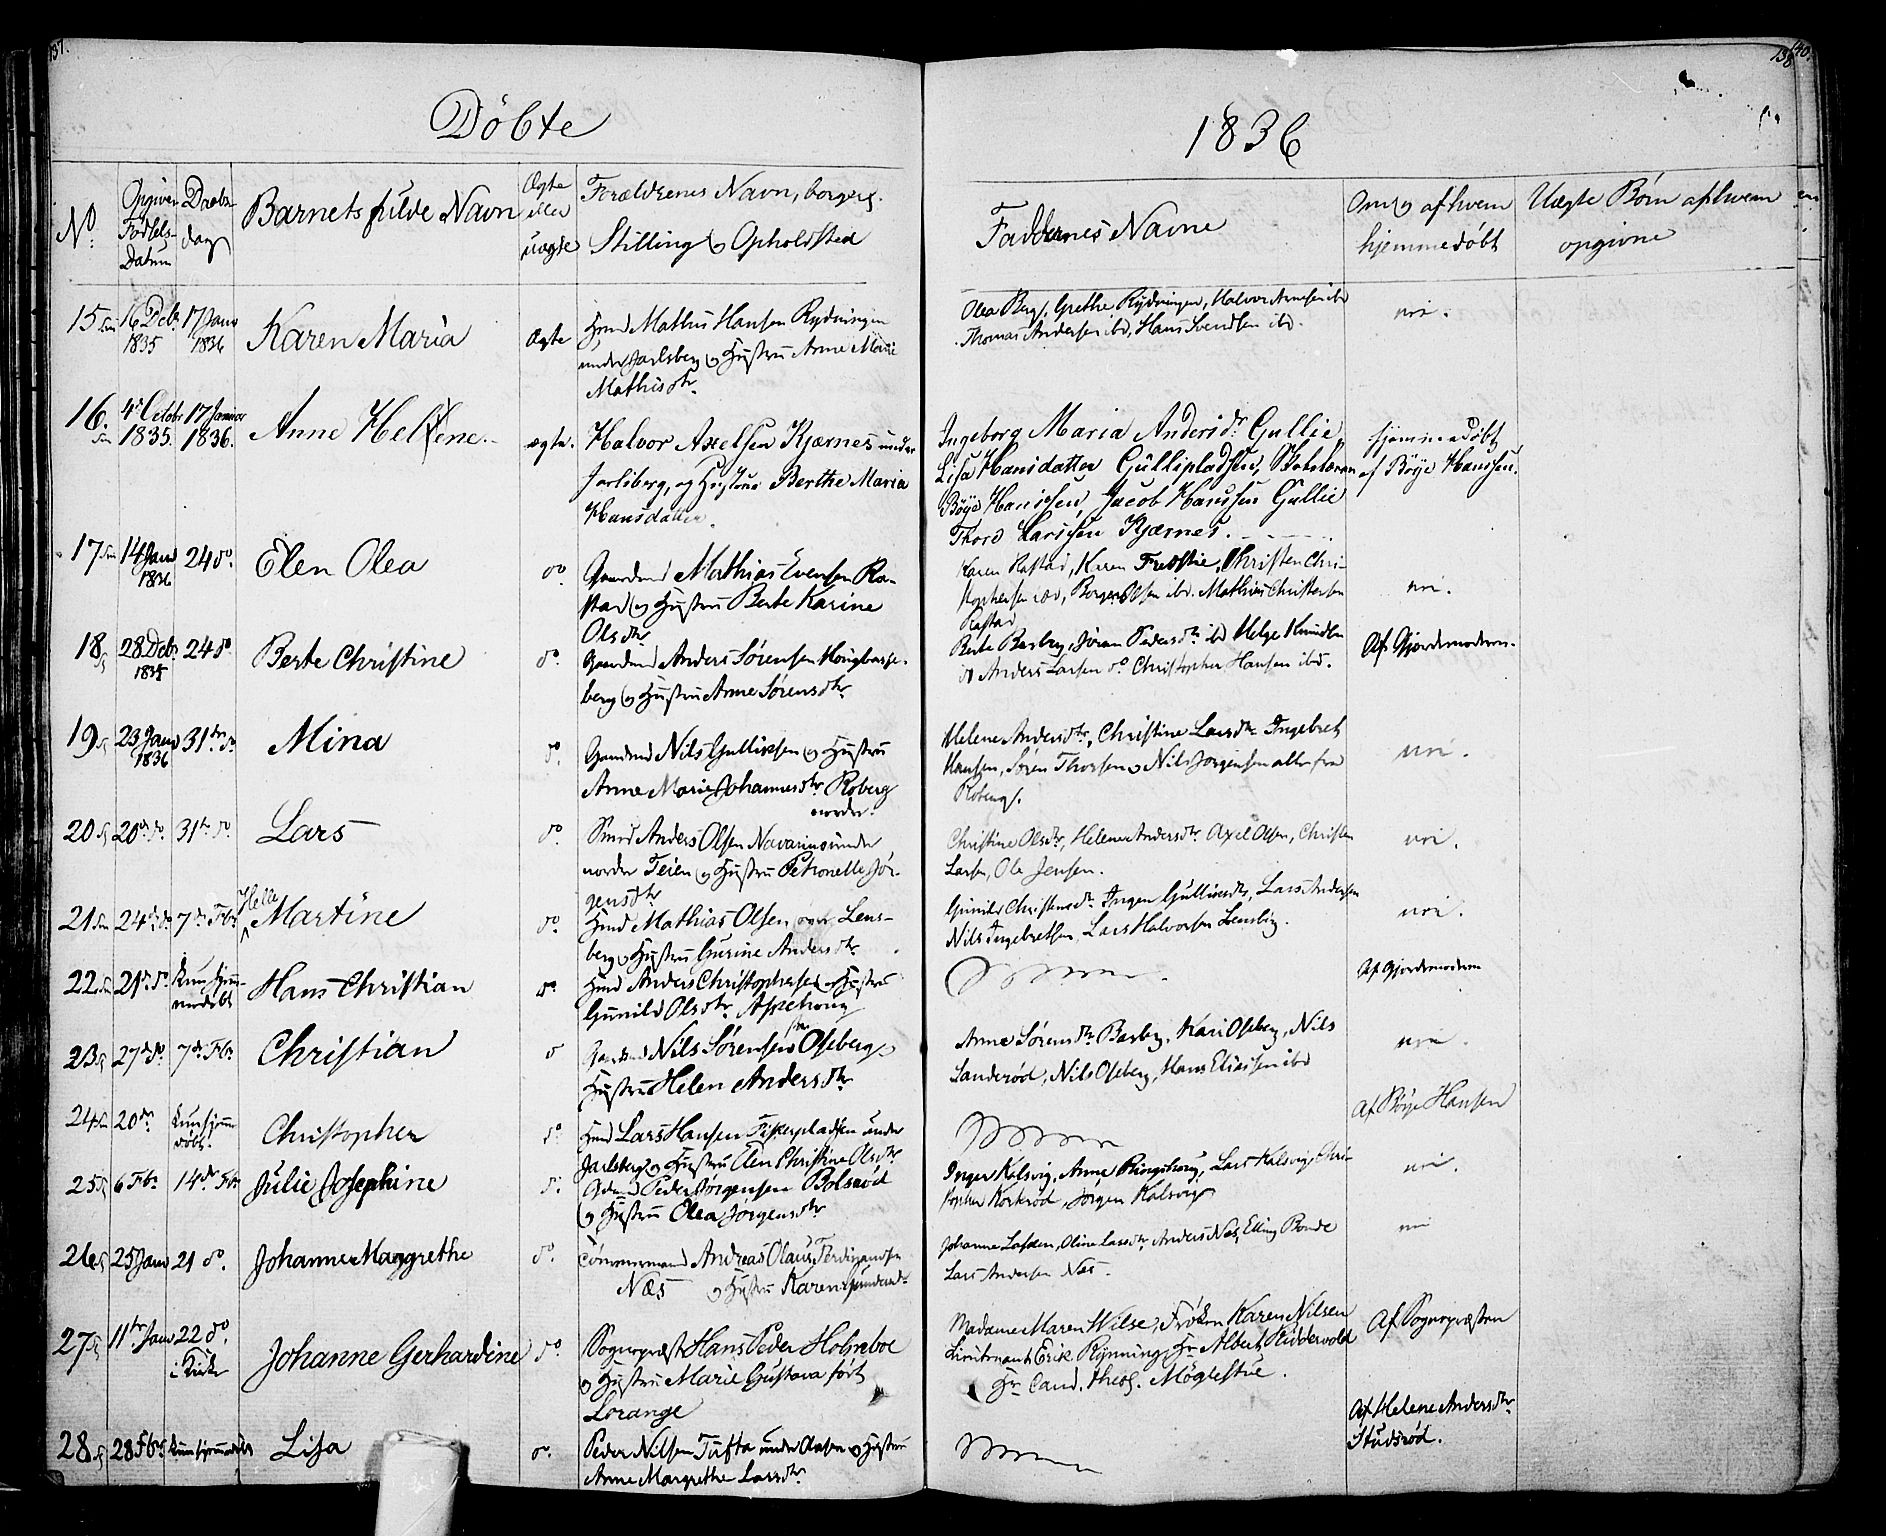 37.
138
140.
Döbte
1836
No
Opgiven Fødsels-Datum
Daabs dag
Barnets fulde Navn
Ægte eller uægte
Forældrenes Navn, borgerl. Stilling og Opholdsted
Faddernes Navne
Om og af hvem hjemmedöbt
Uægte Børn af hvem opgivne
15
16 Debr 1835
17 Janr 1836
Karen Maria
Ægte
Mathis Hansen Rydningen
under Jarlsberg og Hustru Anne Marie
Mathisdtr
Olea Berg, Grethe Rydningen, Halvor Arnesen ibd
Thomas Andersen ibd, Hans Svendsen ibd.
nei.
16.
4de Octobr 1835.
17 Januar 1836.
Anne Helene.
ægte.
Halvor Axelsen Kjærnes under
Jarlsberg, og Hustrue Berthe Maria
Hansdatter.
Ingeborg Maria Andersdr Gullie,
Lisa Hansdatter Gullipladsen,
Böye Hanssen, Jacob Hanssen Gullie
Thord Larssen Kjærnes.
hjemmedöbt
af Böye Hanssen.
17
14 Janr 1836
24 do
Elen Olea
do
Gaardmd Mathias Evensen Ra-
stad og Hustru Berte Karine
Olsdtr
Karen Rastad, Karen Fredstie, Christen Chri-
stophersen ibd, Borger Olsen ibd. Mathias Christensen
Rastad
nei.
18
28 Debr 1835
24 do
Berte Christine
do
Gaardmd Anders Sörensen
berg og Hustru Anne Sörensdtr
Berte Basberg, Jöran Pedersdtr ibd Helge Knudsen
Anders Larsen do Christopher Hansen ibd.
Af Gjordemoderen.
19
23 Janr 1836
31te do
Mina
do
Gaardmd Nils Gulliksen og Hustru
Anne Marie Johannesdtr Roberg
nordre.
Helene Andersdtr, Christine Larsdtr Ingebret
Hansen, Sören Thorsen og Nils Jörgensen alle fra
Roberg.
nei.
20
20de do
31te do
Lars
do
Smed Anders Olsen Navarin under
nordre Teien og Hustru Petronelle Jör-
gensdtr
Christine Olsdtr, Helene Andersdtr Axel Olsen, Christen
Larsen, Ole Jensen.
nei.
21
24de do
7de Fbr
Helle
Martine
do
Hmd Mathias Olsen Lens-
berg og Hustru Gurine Andersdtr
Gunild Christensdtr Inger Gulliksdtr, Lars Andersen
Nils Ingebretsen, Lars Halvorsen Lensberg.
nei.
22
21de do
Kun hjem-
medöbt
Hans Christian
do
Hmd Anders Christophersen og Hustru
Gunild Olsdtr Aspehoug
Af Gjordemoderen
23
27de do
7de Fbr
Christian
do
Gaardmd Nils Sörensen Oseberg og
Hustru Helen Andersdtr
Anne Sörensdtr Basberg, Kari Oseberg, Nils
Sanderöd, Nils Oseberg, Hans Eliassen ibd
nei.
24
20de
Kun hjem-
döbt.
Christopher
do
Hmd Lars Hansen Fiskerpladsen under
Jarlsberg og Hustru Elen Christine Olsdtr
Af Böye Hansen
25
6 Fbr
14de Fbr
Julie Josephine
do
Gdmd Peder Jörgensen Bolseröd
og Hustru Olea Jörgensdtr
Inger Kalsvig, Anne Ringshoug, Lars Kalsvig, Chri-
stopher Korkeröd, Jörgen Kalsvig
nei.
26
25 Janr
21 do
Johanne Margrethe
do
Tömmermand Andreas Olaus Ferdinandsen
Næs og Hustru Karen
Johanne Lofsten, Oline Larsdtr Anders Næs, Elling Bonde
Lars Andersen Næs.
nei
27
11te Janr
22 do
i Kirke
Johanne Gerhardine
do
Sognepræst Hans Peder Holmboe
og Hustru Marie Gustava født
Lorange
Madame Maren Wilse, Fröken Karen Nilsen
Lieutenant Erik Rynning, Hr Albert Ridderwold
Hr Cand. theol. Möglestue.
Af Sognepræsten
28
28 Fbr
Kun hjemmedöbt
Lisa
do
Peder Nilsen Tufta under Aasen og Hustru
Anne Margrethe Larsdtr
Af Helene Andersdtr
Studsröd.